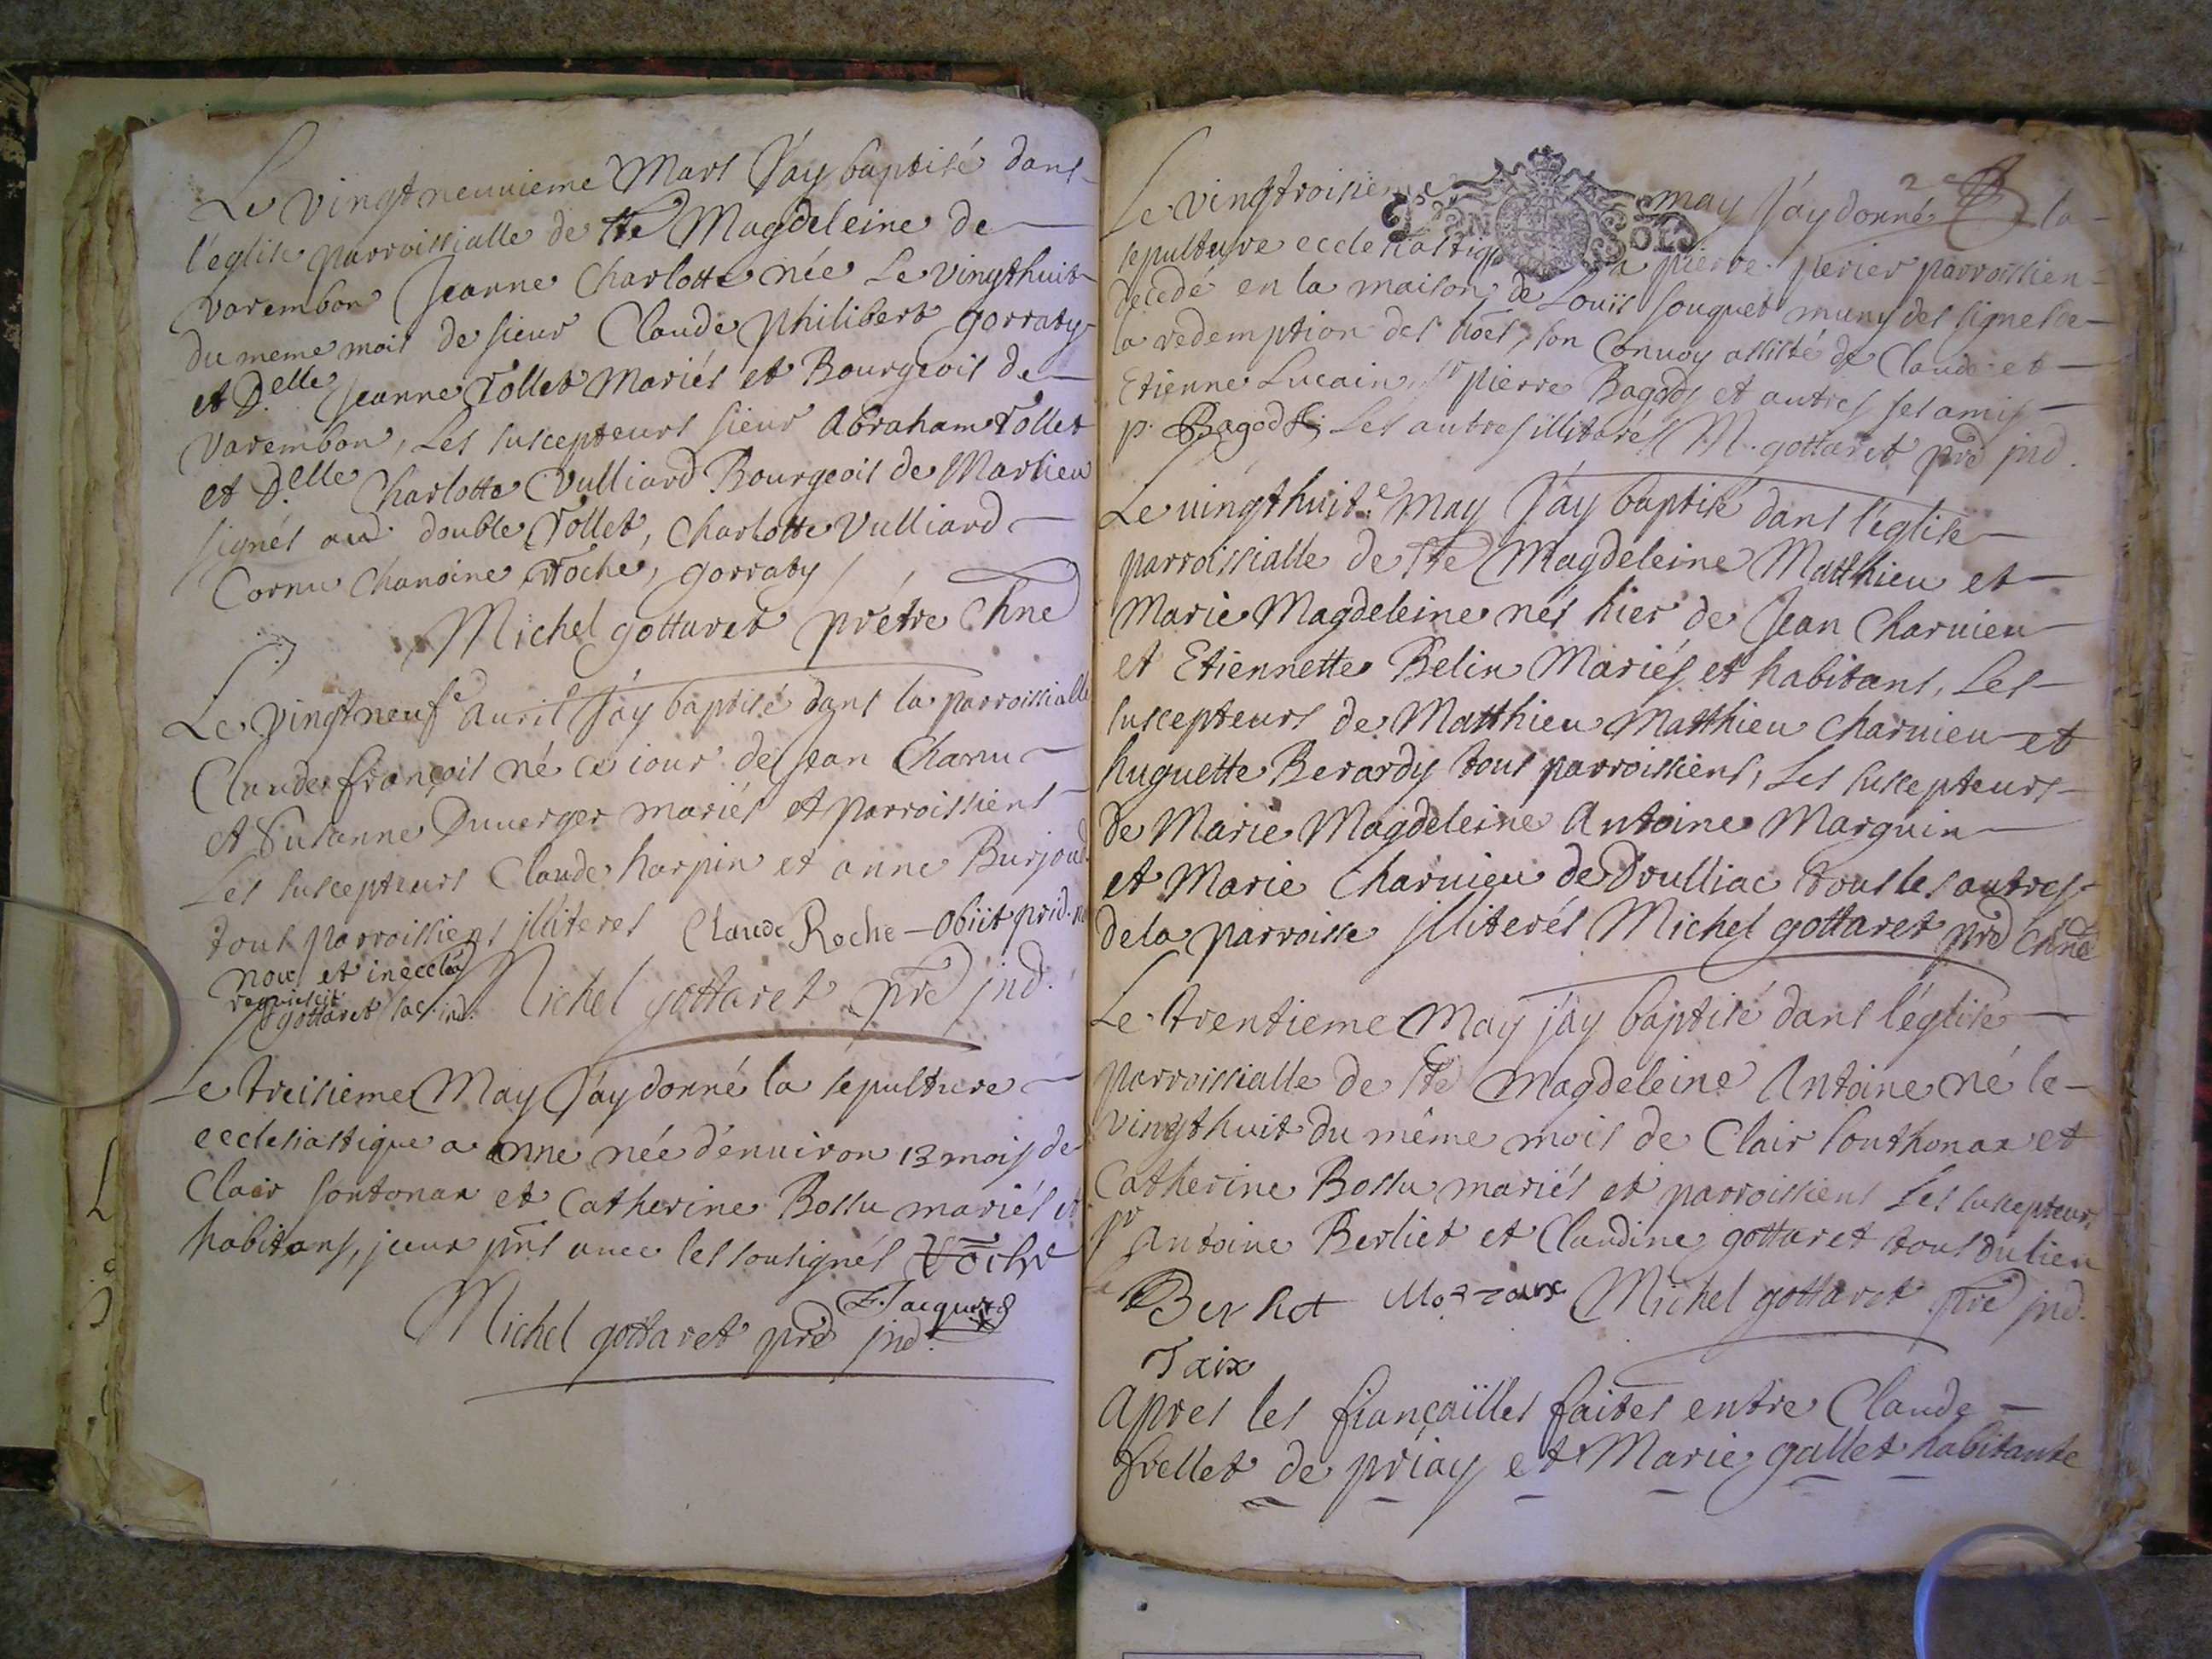 Le vingtneuuieme Mars J'ay baptisé dans
l'eglise parroissialle de Ste Magdeleine de
varembon Jeanne Charlotte née Le vingthuit
du meme mois de sieur Claude philibert gorraty
et D.elle Jeanne Tollet Mariés et Bourgeois de
varembon, Les suscepteurs sieur Abraham Tollet
et D.elle Charlotte Vulliard Bourgeois de Marlieu
signés au double Tollet, Charlotte Vulliard
Cornu Chanoine Roche, gorraty
Michel gottaret prétre Chne
Le vingtneufe auril J'ay baptisé dans la parroissialle
Claude françois né ce iour de Jean Chanu
et Susanne Duuerger mariés et parroissiens
Les suscepteurs Claude harpin et anne Burjoud
tous parroissiens illiteres Claude Roche - obiit prid.
nou et in
requiescit
gottaret sac. ind. Michel gottaret pre jnd.
Le treisieme May J'ay donné la sepulture
ecclesiastique a anne née d'enuiron 13 mois de
Clair sontonax et Catherine Bossu mariés et
habitans, jceux pns auec les sousignés Roche
F. Jacquier
Michel gottaret pre jnd.
2e
Le vingtroisieme may J'ay donné la
DEN SOLS
sepulture ecclesiastique a pierre perier parroissien
decedé en la maison de Louis souquet muny des signes de
la redemption des nôes, son Conuoy assisté de Claude et
Etienne Lucain, Sr pierre Bagody et autres ses amis
p. Bagody Les autres illiterés M. gottaret pre jnd.
Le uingthuit.e May J'ay baptisé dans l'eglise
parroissialle de Ste Magdeleine Matthieu et
Marie Magdeleine nés hier de Jean Charuieu
et Etiennette Belin Mariés et habitans, Les
suscepteurs de Matthieu Matthieu Charuieu et
huguette Berardy tous parroissiens, Les suscepteurs
de Marie Magdeleine Antoine Marguin
et Marie Charuieu de Druilliac tous les autres
de la parroisse illiterés Michel gottaret pre Chne
Le trentieme May j'ay baptisé dans l'eglise
parroissialle de Ste Magdeleine Antoine né le
vingthuit du même mois de Clair Sonthonax et
Catherine Bossu mariés et parroissiens Les suscepteurs
Sr Antoine Berliet et Claudine gottaret tous du lieu
Berliet Michel gottaret pre jnd.
Taix
Apres les fiançailles faites entre Claude
frellet de priay et Marie gallet habitante